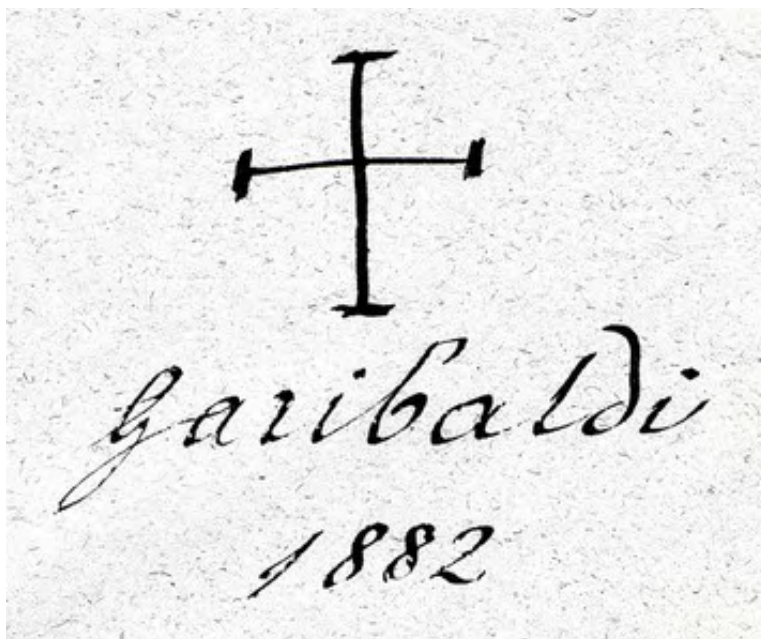 Garibaldi
1882